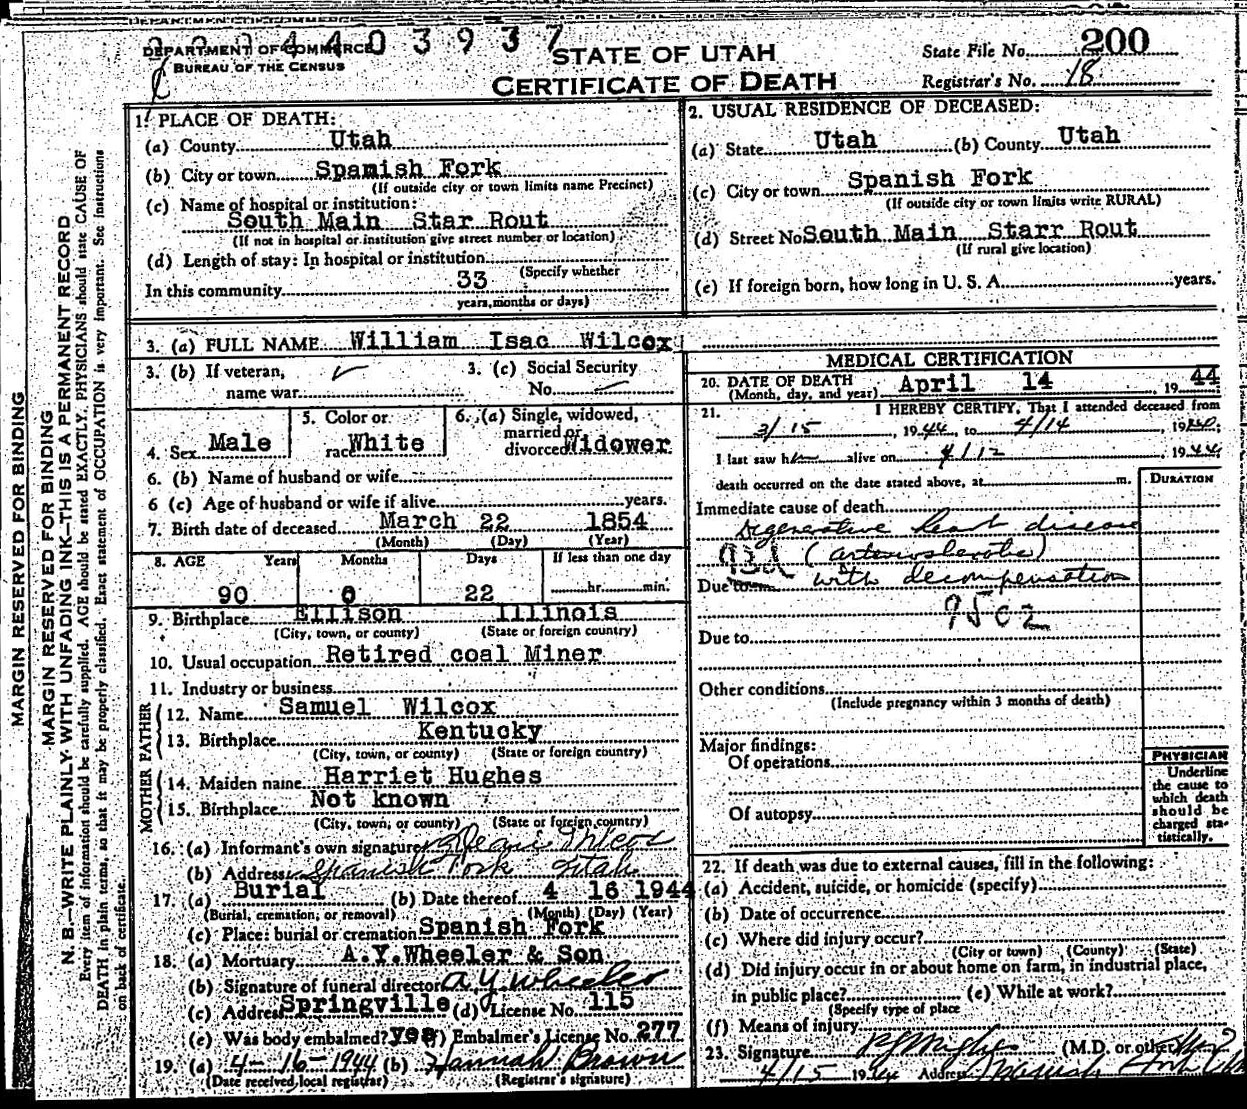 DEPARTMENT OF COMMERCE
BUREAU OF THE CENSUS
STATE OF UTAH
CERTIFICATE OF DEATH
State File No. 200
Registrar's No. 18
MARGIN RESERVED FOR BINDING
MARGIN RESERVED FOR BINDING
N. B.—WRITE PLAINLY, WITH UNFADING INK—THIS IS A PERMANENT RECORD
Every item of information should be carefully supplied. AGE should be stated EXACTLY. PHYSICIANS should state CAUSE OF
DEATH in plain terms, so that it may be properly classified. Exact statement of OCCUPATION is very important. See instructions
on back of certificate.
1. PLACE OF DEATH:
(a) County Utah
(b) City or town Spanish Fork
(If outside city or town limits name Precinct)
(c) Name of hospital or institution:
South Main Star Rout
(If not in hospital or institution give street number or location)
(d) Length of stay: In hospital or institution
(Specify whether
In this community 33
years, months or days)
2. USUAL RESIDENCE OF DECEASED:
(a) State Utah (b) County Utah
(c) City or town Spanish Fork
(If outside city or town limits write RURAL)
(d) Street No. South Main Starr Rout
(If rural give location)
(e) If foreign born, how long in U. S. A. years.
3. (a) FULL NAME William Isac Wilcox
3. (b) If veteran, name war
3. (c) Social Security No.
4. Sex Male
5. Color or race White
6. (a) Single, widowed, married or divorced Widower
6. (b) Name of husband or wife
6 (c) Age of husband or wife if alive years.
7. Birth date of deceased March 22 1854
(Month) (Day) (Year)
8. AGE Years Months Days If less than one day
90 0 22 hr. min.
9. Birthplace Ellison Illinois
(City, town, or county) (State or foreign country)
10. Usual occupation Retired coal Miner
11. Industry or business
FATHER
12. Name Samuel Wilcox
13. Birthplace Kentucky
(City, town, or county) (State or foreign country)
MOTHER
14. Maiden name Harriet Hughes
15. Birthplace Not known
(City, town, or county) (State or foreign country)
16. (a) Informant's own signature Wilcox
(b) Address Spanish Fork Utah
17. (a) Burial (b) Date thereof 4 16 1944
(Burial, cremation, or removal) (Month) (Day) (Year)
(c) Place: burial or cremation Spanish Fork
18. (a) Mortuary A.Y.Wheeler & Son
(b) Signature of funeral director A Y Wheeler
(c) Address Springville (d) License No. 115
(e) Was body embalmed? yes Embalmer's License No. 277
19. (a) 4-16-1944 (b) Hannah Brown
(Date received local registrar) (Registrar's signature)
MEDICAL CERTIFICATION
20. DATE OF DEATH April 14, 1944
(Month, day, and year)
21. I HEREBY CERTIFY, That I attended deceased from
3/15, 1944, to 4/14, 19
I last saw h alive on 4/12, 1944
death occurred on the date stated above, at m.
DURATION
Immediate cause of death
Degenerative heart disease
93d (arteriosclerotic)
Due to with decompensation
95c2
Due to
Other conditions
(Include pregnancy within 3 months of death)
Major findings:
Of operations
Of autopsy
PHYSICIAN
Underline
the cause to
which death
should be
charged sta-
tistically.
22. If death was due to external causes, fill in the following:
(a) Accident, suicide, or homicide (specify)
(b) Date of occurrence
(c) Where did injury occur?
(City or town) (County) (State)
(d) Did injury occur in or about home on farm, in industrial place,
in public place? (e) While at work?
(Specify type of place
(f) Means of injury
23. Signature (M.D. or other)
4/15 1944 Address Spanish Fork